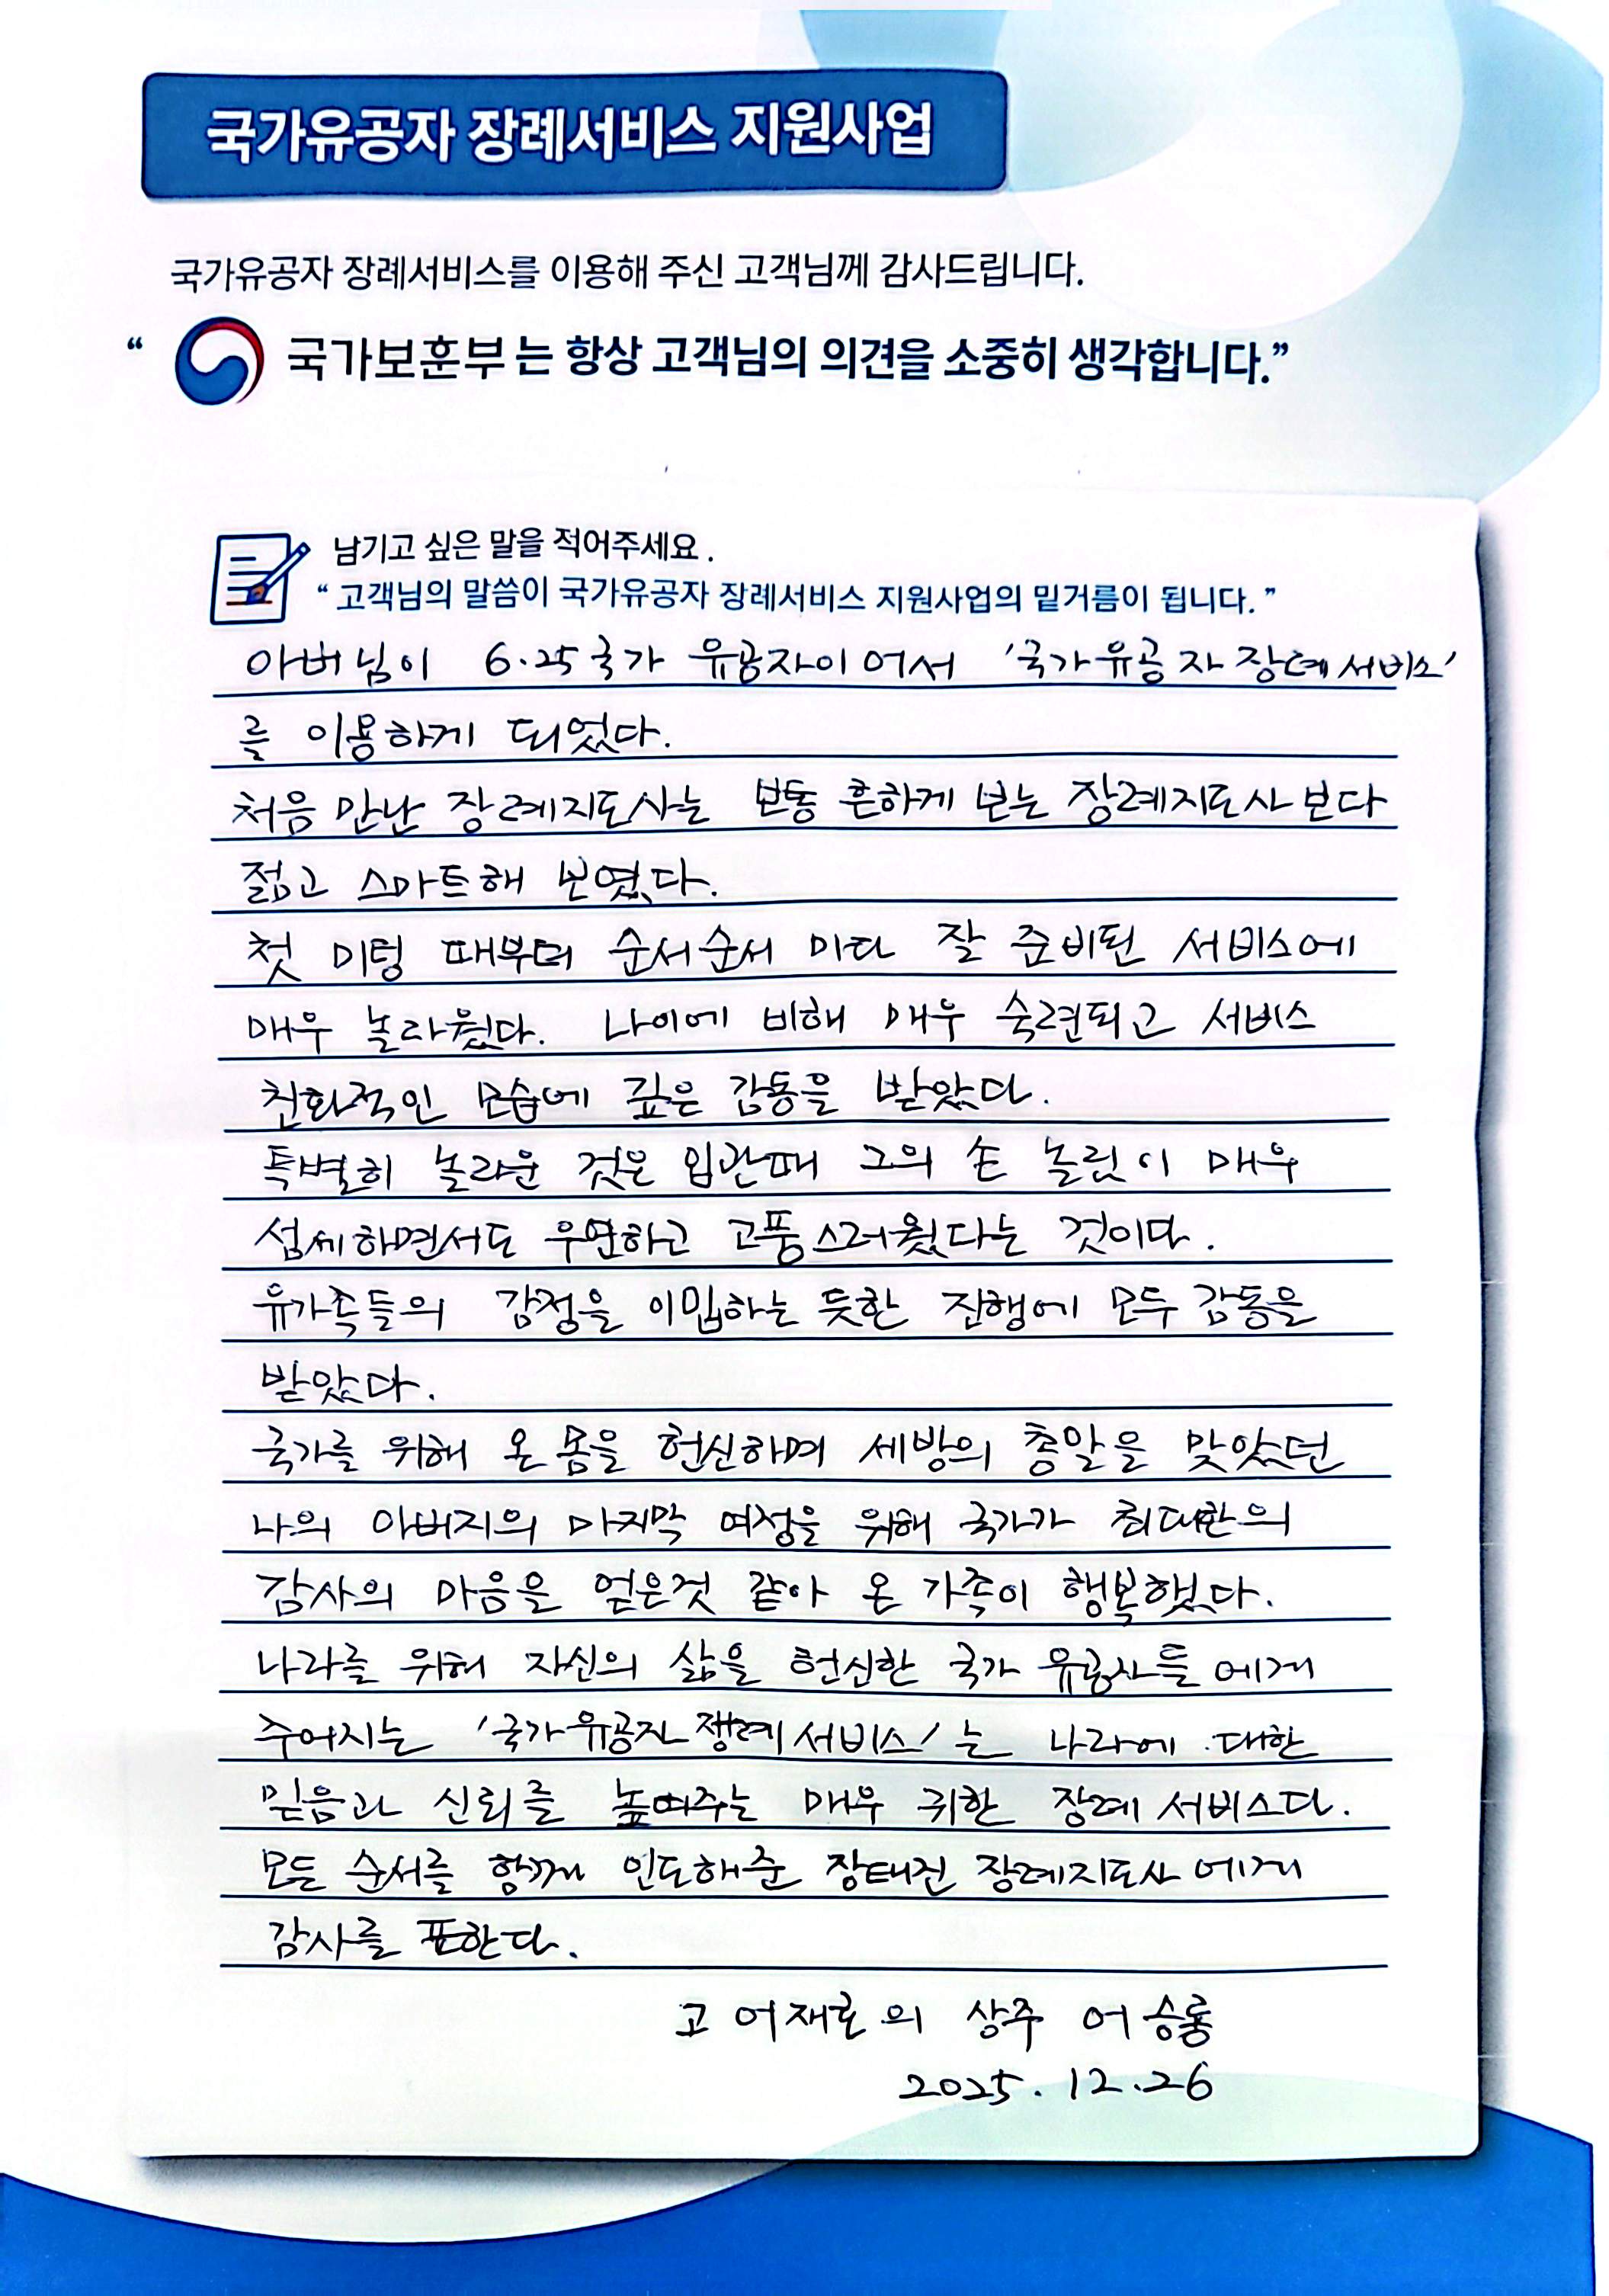 국가유공자 장례서비스 지원사업
국가유공자 장례서비스를 이용해 주신 고객님께 감사드립니다.
“ 국가보훈부 는 항상 고객님의 의견을 소중히 생각합니다.”
남기고 싶은 말을 적어주세요 .
“ 고객님의 말씀이 국가유공자 장례서비스 지원사업의 밑거름이 됩니다. ”
아버님이 6·25 국가 유공자이어서 '국가유공자 장례서비스'
를 이용하게 되었다.
처음 만난 장례지도사는 보통 흔하게 보는 장례지도사보다
젊고 스마트해 보였다.
첫 미팅 때부터 순서순서 마다 잘 준비된 서비스에
매우 놀라웠다. 나이에 비해 매우 숙련되고 서비스
친화적인 모습에 깊은 감동을 받았다.
특별히 놀라운 것은 입관때 그의 손 놀림이 매우
섬세하면서도 우아하고 고풍스러웠다는 것이다.
유가족들의 감정을 이입하는 듯한 진행에 모두 감동을
받았다.
국가를 위해 온 몸을 헌신하며 세방의 총알을 맞았던
나의 아버지의 마지막 여정을 위해 국가가 최대한의
감사의 마음을 얹은것 같아 온 가족이 행복했다.
나라를 위해 자신의 삶을 헌신한 국가 유공자들에게
주어지는 '국가유공자 장례서비스'는 나라에 대한
믿음과 신뢰를 높여주는 매우 귀한 장례 서비스다.
모든 순서를 함께 인도해준 장태진 장례지도사에게
감사를 표한다.
고 어재호의 상주 어승룡
2025. 12.26